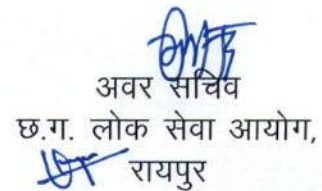 अवर सचिव
छ.ग. लोक सेवा आयोग,
रायपुर